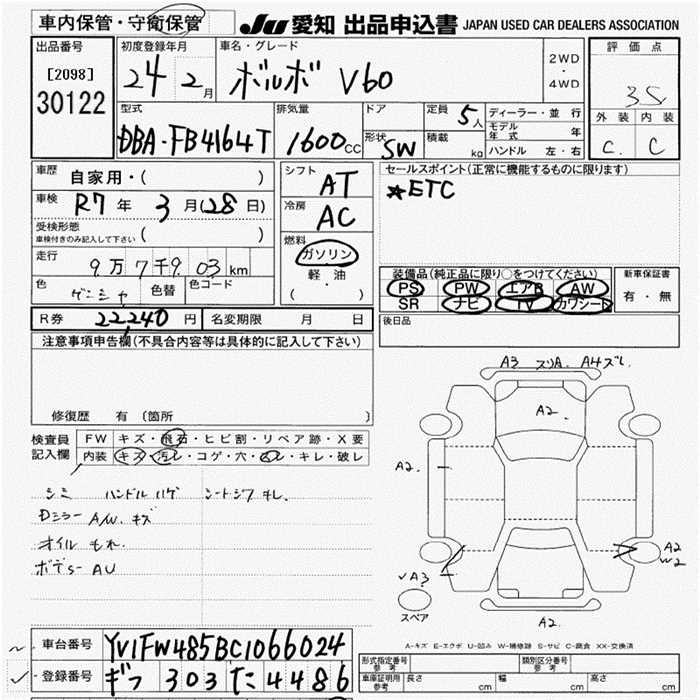 車内保管・守衛保管 JU 愛知 出品申込書 JAPAN USED CAR DEALERS ASSOCIATION
出品番号 初度登録年月 車名・グレード 評価点
[2098] 24 2月 ボルボ V60 2WD・4WD 3.5
30122 外装 内装
型式 排気量 ドア 定員 5人 ディーラー・並行 C. C
DBA-FB4164T 1600cc 形状 SW 積載 kg モデル年式 年
ハンドル 左・右
車歴 自家用・( ) シフト AT セールスポイント(正常に機能するものに限ります)
車検 R7年 3月(28日) 冷房 AC ★ETC
受検形態 ( )
車検付きのみ記入して下さい
走行 9万7千9 03km 燃料 ガソリン 軽油 ( ・ )
装備品(純正品に限り○をつけてください) 新車保証書
色 ゲンシャ 色替 色コード PS PW エアB AW 有・無
SR ナビ TV カワシート
R券 22,240円 名変期限 月 日 後日品
注意事項申告欄(不具合内容等は具体的に記入して下さい)
修復歴 有 〔箇所 〕
検査員記入欄 FW キズ・飛石・ヒビ割・リペア跡・X要
内装 キズ・汚レ・コゲ・穴・スレ・キレ・破レ
シミ ハンドルハゲ シートシワ キレ.
Dミラー A/W. キズ
オイル もれ.
ボデS- AU
A3 スリA. A4ズレ.
A2.
A2.
A2
W2
√A3
スペア
A2.
A-キズ E-エクボ U-凹み W-補修跡 S-サビ C-腐食 XX-交換済
車台番号 YV1FW485BC1066024
登録番号 ギフ 303 た 4486
形式指定番号 参考 類別区分番号 参考
車庫証明用 参考 長さ cm 幅 cm 高さ cm